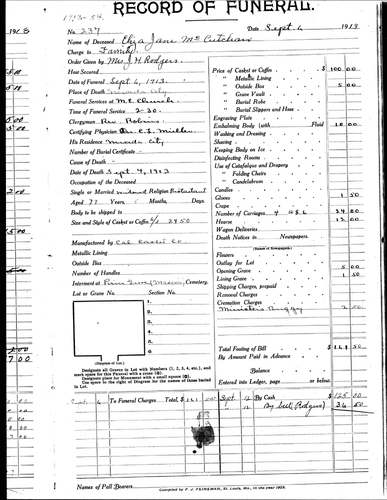 1913-54.
RECORD OF FUNERAL.
No. 237 Date Sept. 6 1913
Name of Deceased Eliza Jane Mc Cutchan
Charge to Family
Order Given by Mrs. J. H. Rodgers.
How Secured
Date of Funeral Sept 6, 1913.
Place of Death Nevada City
Funeral Services at M.E. Church
Time of Funeral Service 2-30.
Clergyman Rev. Robins
Certifying Physician Dr. C. L. Muller
His Residence Nevada City
Number of Burial Certificate
Cause of Death
Date of Death Sept. 4, 1913
Occupation of the Deceased
Single or Married Religion Protestant
Aged 77 Years, Months, Days.
Body to be shipped to
Size and Style of Casket or Coffin 2450
Manufactured by Cal. Casket Co.
Metallic Lining
Outside Box
Number of Handles
Interment at Cemetery.
Lot or Grave No. Section No.
1.
2.
3.
4.
5.
6.
(Diagram of Lot.)
Designate all Graves in Lot with Numbers (1, 2, 3, 4, etc.), and
mark space for this Funeral with a cross (X).
Designate place for Monument with a small square (□).
Use space to the right of Diagram for the names of those buried
in Lot.
Price of Casket or Coffin $ 100 00
" Metallic Lining
" Outside Box 5 00
" Grave Vault
" Burial Robe
" Burial Slippers and Hose
Engraving Plate
Embalming Body (with Fluid) 10 00
Washing and Dressing
Shaving
Keeping Body on Ice
Disinfecting Rooms
Use of Catafalque and Drapery
" Folding Chairs
" Candelabrum
Candles
Gloves 1 50
Crape
Number of Carriages 4 @ $6 24 00
Hearse 12 00
Wagon Deliveries
Death Notices in Newspapers
(Names of Newspapers.)
Flowers
Outlay for Lot
Opening Grave 5 00
Lining Grave 1 50
Shipping Charges, prepaid
Removal Charges
Cremation Charges
Ministers Buggy 2 50
Total Footing of Bill $161 50
By Amount Paid in Advance
Balance
Entered into Ledger, page or below.
Sept. 6 To Funeral Charges Total, $161 50 Sept. 12 By Cash $125 00
" 12 By (Rodgers) 36 50
Names of Pall Bearers
Compiled by F. J. FEINEMAN, St. Louis, Mo., in the year 1909.